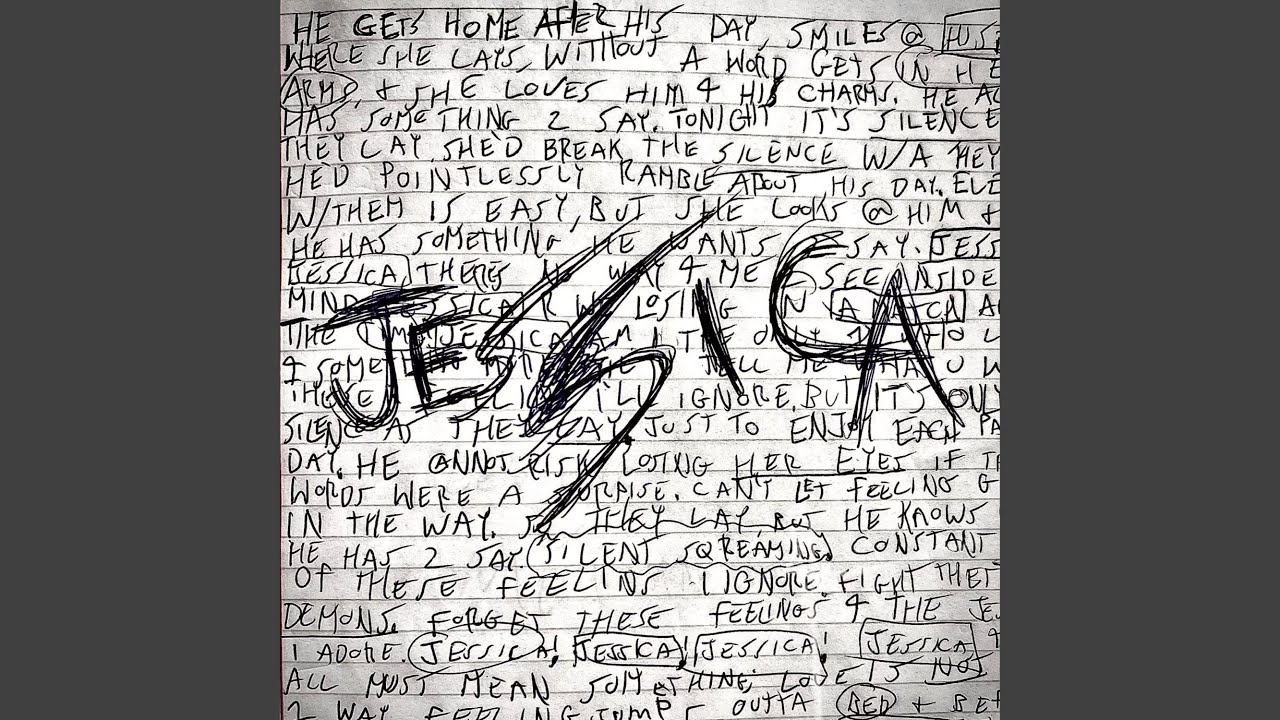 HE GETS HOME AFTER HIS DAY, SMILES @
WHERE SHE LAYS, WITHOUT A WORD GETS IN
ARMS, & SHE LOVES HIM 4 HIS CHARMS. HE
HAS SOMETHING 2 SAY. TONIGHT IT'S SILENCE
THEY LAY. SHE'D BREAK THE SILENCE W/A
HE'D POINTLESSLY RAMBLE ABOUT HIS DAY.
W/THEM IS EASY, BUT SHE LOOKS @ HIM &
HE HAS SOMETHING HE WANTS 2 SAY.
JESSICA THERES NO WAY 4 ME 2 SEE INSIDE
MIND. JESSICA R WE LOSING IN A MATCH
THE JESSICA AM I THE ONLY 1 WHO
TELL ME WHAT U
I'LL IGNORE. BUT IT'S ONLY
SILENCE AS THEY LAY. JUST TO ENJOY EACH
DAY. HE CANNOT RISK LOSING HER EYES IF
WORDS WERE A SURPRISE. CAN'T LET FEELING
IN THE WAY. SO THEY LAY, BUT HE KNOWS
HE HAS 2 SAY. SILENT SQREAMING, CONSTANT
OF THESE FEELINS I IGNORE. FIGHT
DEMONS, FORGET THESE FEELINGS 4 THE
I ADORE. JESSICA! JESSICA! JESSICA! JESSICA
ALL MUST MEAN SOMETHING; LOVE IS NOT
2 WAY FEELING. JUMPS OUTTA BED &
JESSICA